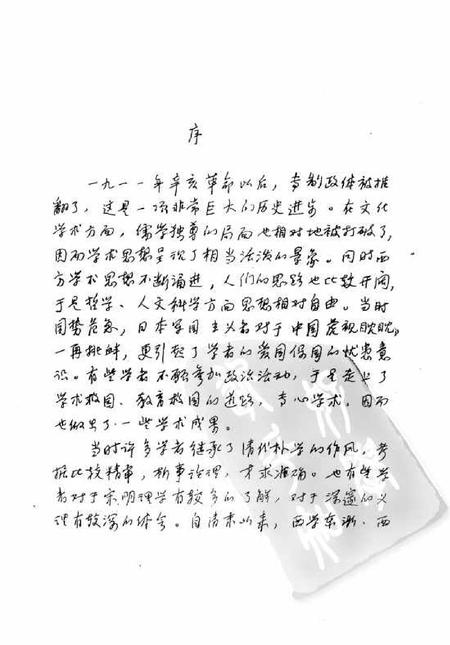 序
一九一一年辛亥革命以后，专制政体被推
翻了，这是一项非常巨大的历史进步。在文化
学术方面，儒学独尊的局面也相对地被打破了，
因而学术思想呈现了相当活泼的景象。同时西
方学术思想不断涌进，人们的思路也比较开阔，
于是哲学、人文科学方面思想相对自由。当时
国势危急，日本军国主义者对于中国虎视眈眈，
一再挑衅，更引起了学者的爱国保国的忧患意
识。有些学者不愿参加政治活动，于是走上了
学术救国、教育救国的道路，专心学术，因而
也做出了一些学术成果。
当时许多学者继承了清代朴学的作风，考
据比较精审，析事论理，才求准确。也有些学
者对于宋明理学有较多的了解，对于深邃的义
理有较深的体会。自清末以来，西学东渐，西